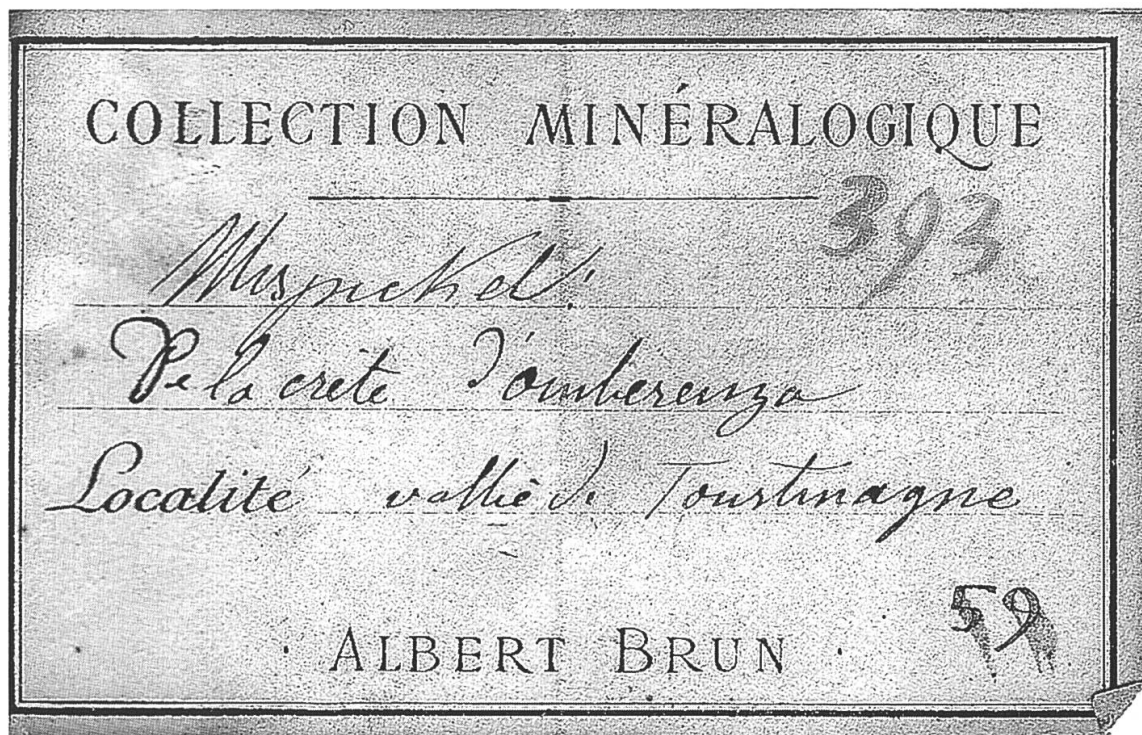 COLLECTION MINÉRALOGIQUE
393
Mispickel
De la crête d'omberenza
Localité vallée de Tourtmagne
59
ALBERT BRUN